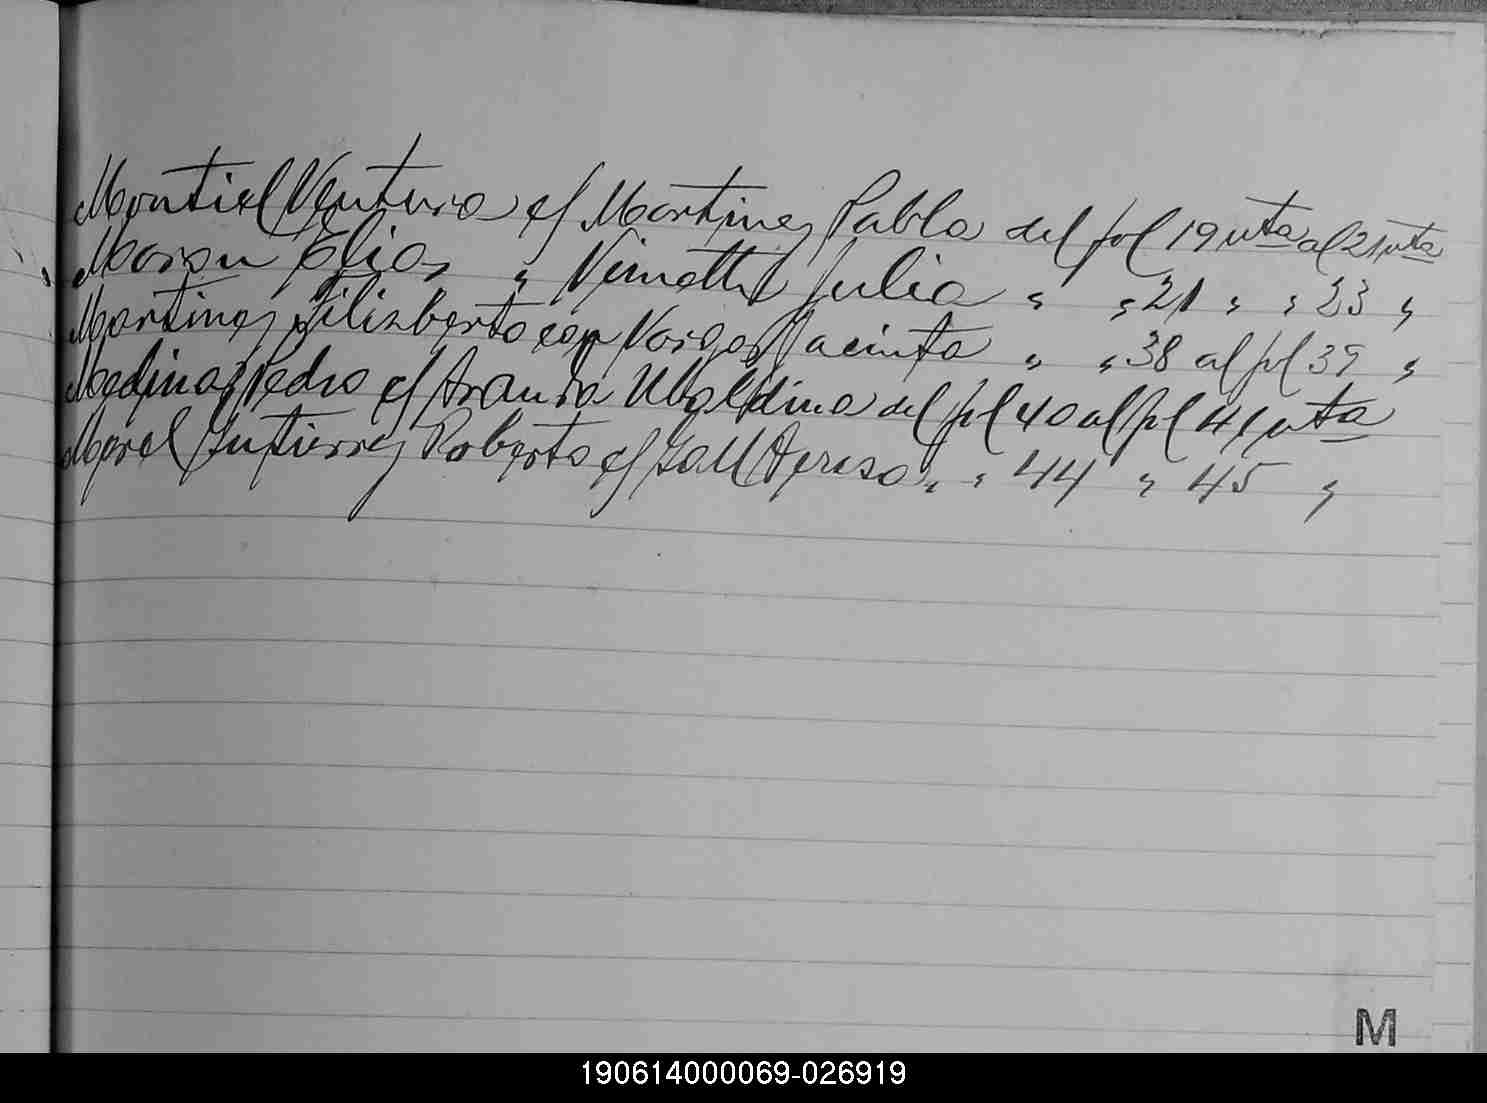 Montiel Ventura c/ Martinez Pabla del fol 19 vta al 21 vta
Moran Elias " Vimetti Julia " " 21 " " 23 "
Martinez Filisberto con Vargas Jacinta " " 38 al fol 39 "
Medina Pedro c/ Aranda Ubaldina del fol 40 al fol 41 vta
Morel Gutierrez Roberto c/ Teresa " " 44 " 45 "
M
190614000069-026919